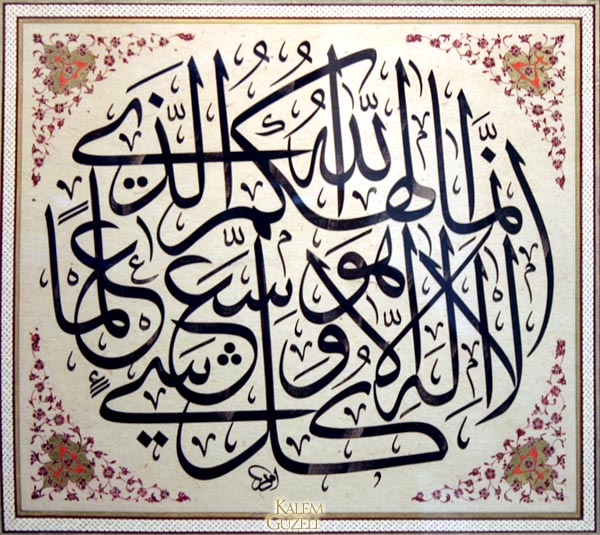 إنما إلهكم الله الذي
لا إله إلا هو وسع
كل شيء علما
KALEM
GÜZELİ